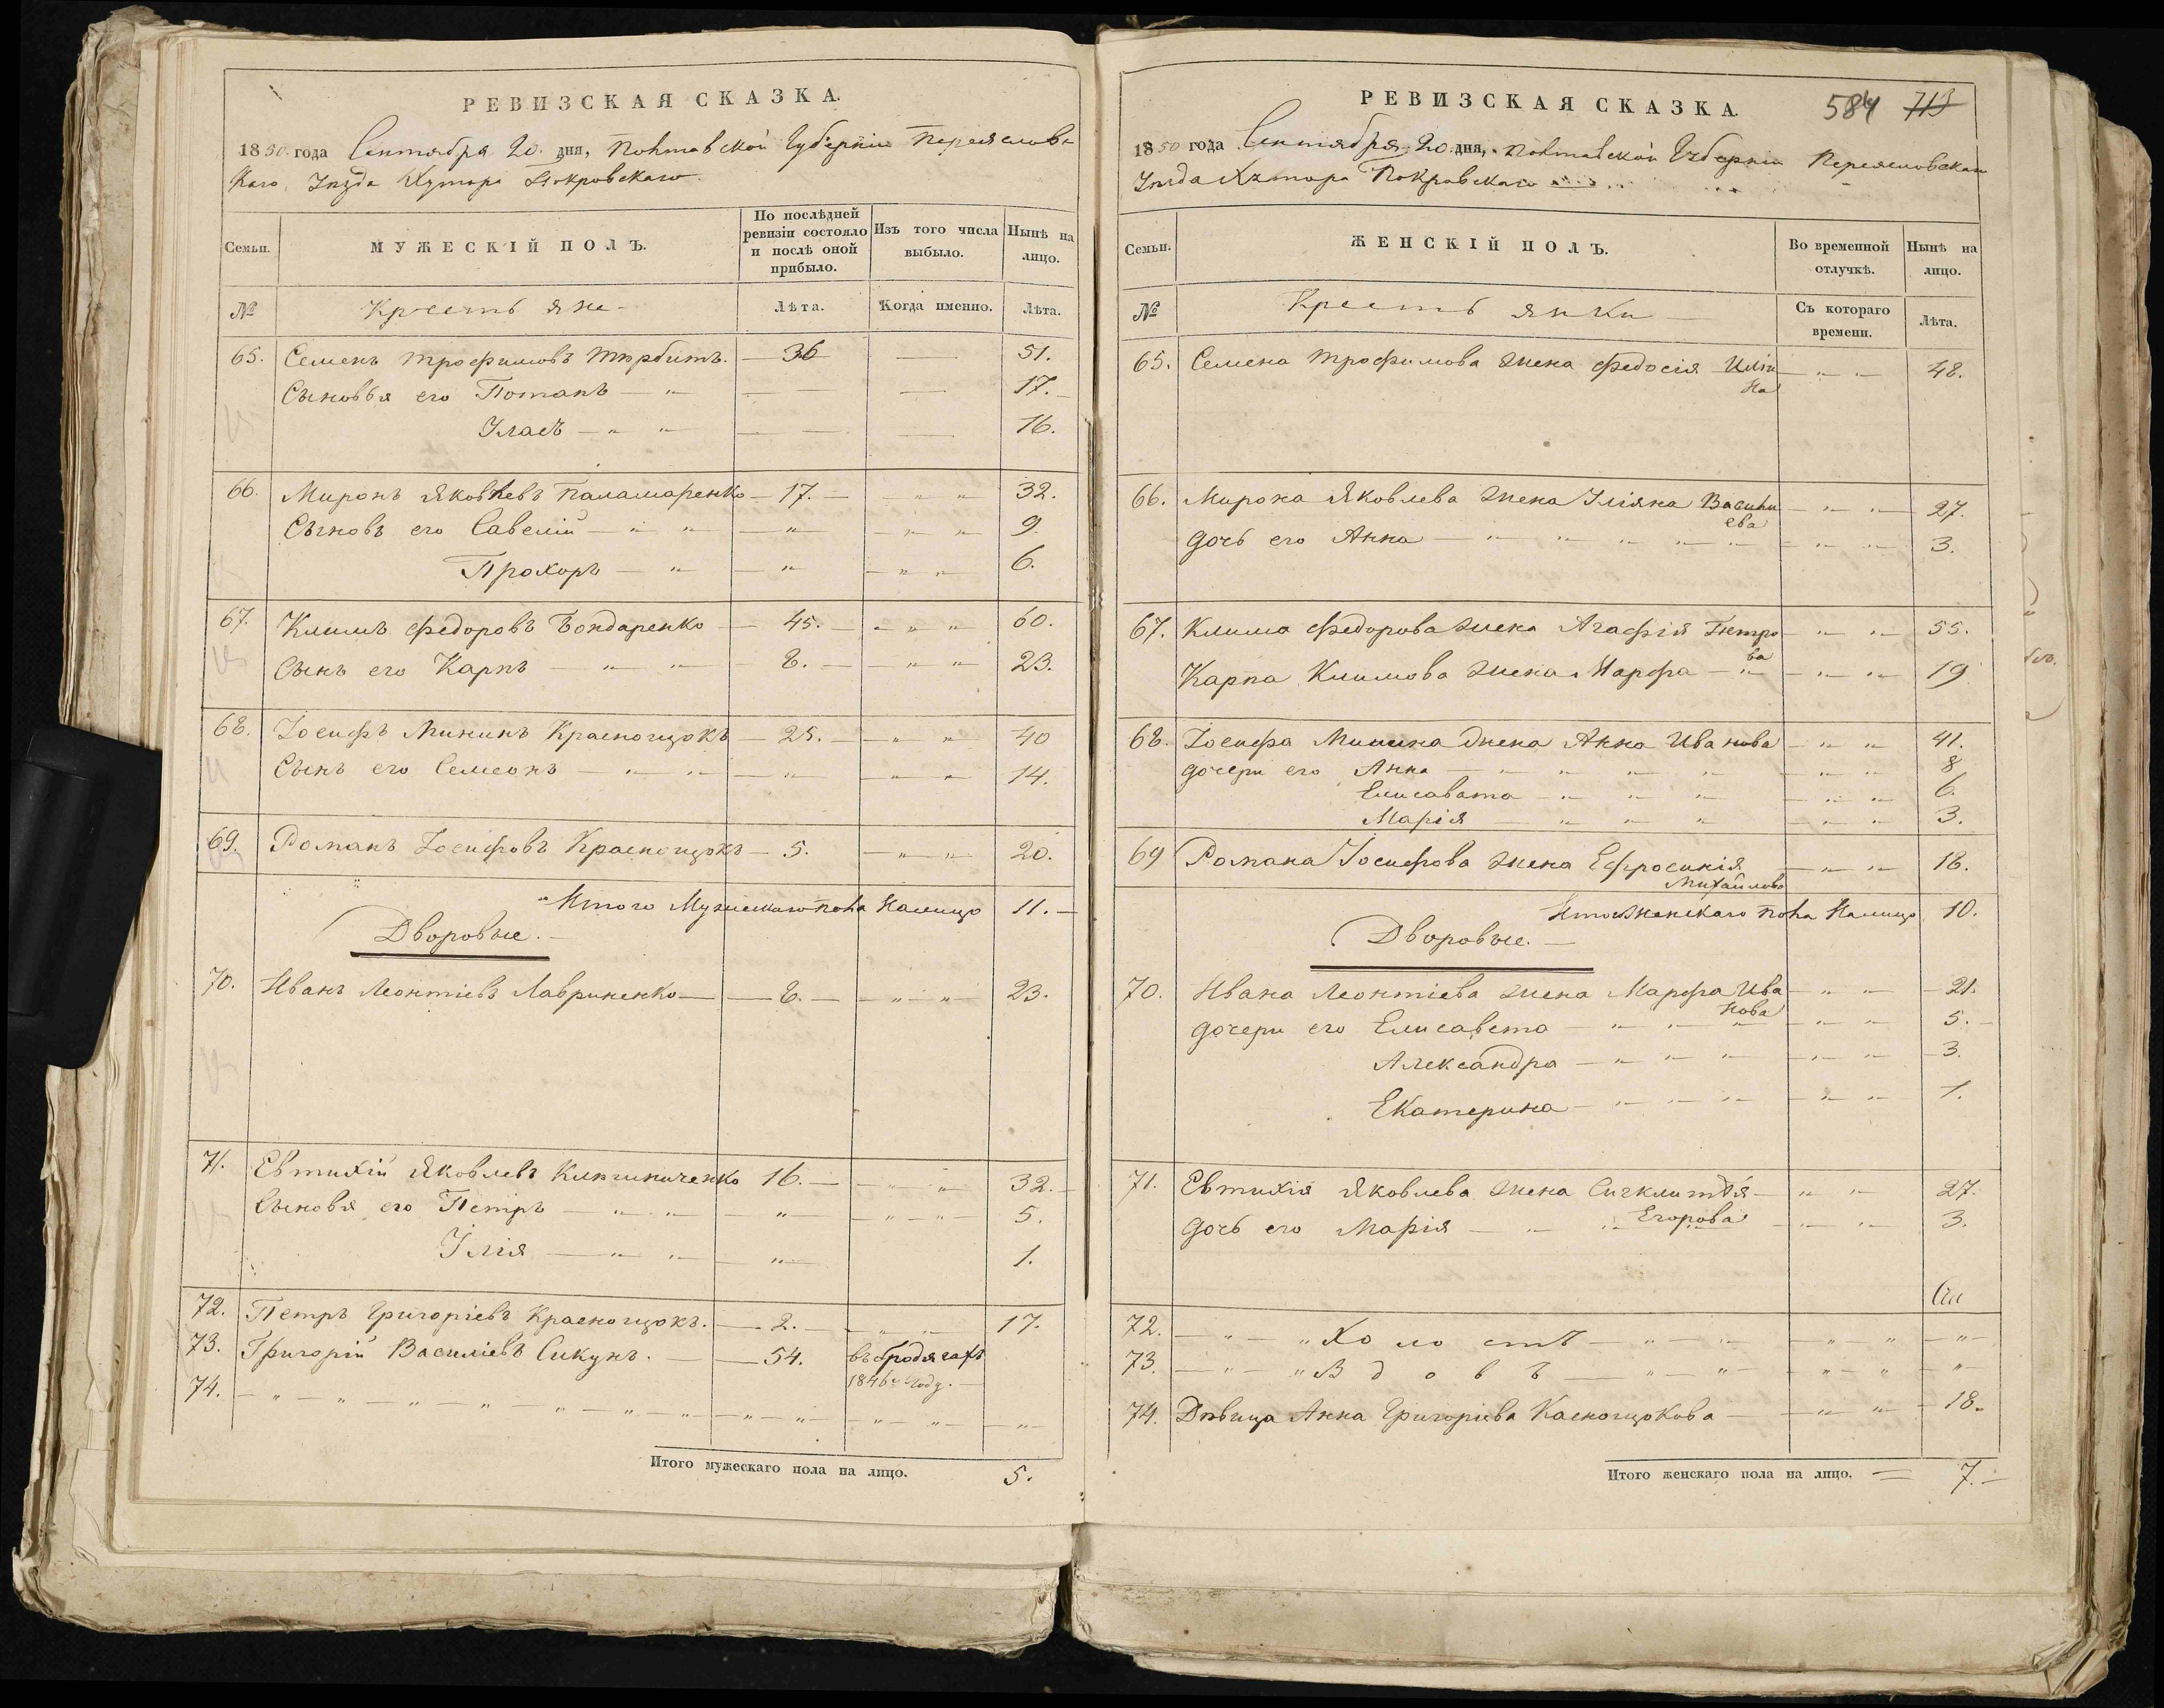 РЕВИЗСКАЯ СКАЗКА.
1850 года Сентября 20 дня, Полтавской Губернiи Переяславс
каго Уѣзда Хутора Покровскаго
Семьи.
МУЖЕСКІЙ ПОЛЪ.
По послѣдней ревизіи состояло и послѣ оной прибыло.
Изъ того числа выбыло.
Нынѣ на лицо.
№
Крестьяне
Лѣта.
Когда именно.
Лѣта.
65. Семенъ Трофимовъ 36 51.
Сыновья его Потапъ 17.
Уласъ 16.
66. Миронъ Яковлевъ Паламаренко 17. 32.
Сыновъ его Савелій 9.
Прохоръ 6.
67. Климъ Федоровъ Бондаренко 45. 60.
Сынъ его Карпъ 8. 23.
68. Іосифъ Мининъ Красногщокъ 25. 40
Сынъ его Семеонъ 14.
69. Романъ Іосифовъ Красногщокъ 5. 20.
Итого Мужескаго пола Налицо 11.
Дворовые.
70. Иванъ Леонтіевъ Лавриненко 8. 23.
71. Евтихій Яковлевъ 16. 32.
Сыновя его Петръ 5.
Ілія 1.
72. Петръ Григоріевъ Красногщокъ. 2. 17.
73. Григорій Василіевъ Сикунъ. 54. въ бродягахъ
1846 году.
74.
Итого мужескаго пола на лицо. 5.
РЕВИЗСКАЯ СКАЗКА.
584 713
1850 года Сентября 20 дня, Полтавской Губерніи Переясловскаго
Уѣзда Хутора Покровскаго
Семьи.
ЖЕНСКІЙ ПОЛЪ.
Во временной отлучкѣ.
Нынѣ на лицо.
№
Крестьянки
Съ котораго времени.
Лѣта.
65. Семена Трофимова жена Федосія Иліи 48.
на
66. Мирона Яковлева жена Уліяна Васили 27.
ева
дочь его Анна 3.
67. Клима Федорова жена Агафія Петро 55.
ва
Карпа Климова жена Марфа 19
68. Іосифа Минина жена Анна Иванова 41.
дочери его Анна 8
Елисавета 6.
Марія 3.
69 Романа Іосифова жена Ефросинія 18.
Михайлова
Итого Женскаго пола Налицо 10.
Дворовые.
70. Ивана Леонтіева жена Марфа Ива 21.
нова
дочери его Елисавета 5.
Александра 3.
Екатерина 1.
71. Евтихія Яковлева жена Сигклитія 27.
Егорова
дочь его Марія 3.
72. Холостъ
73. Вдовъ
74. Дѣвица Анна Григоріева Касногщокова 18.
Итого женскаго пола на лицо. 7.